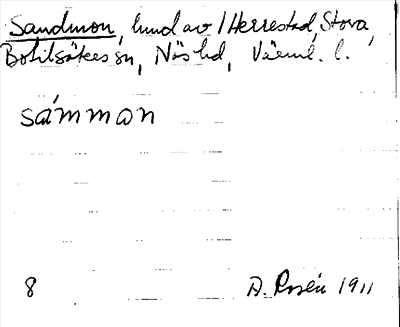 Sandmon, lund av / Herrestad, Stora
Botilsäters sn, Näs hd, Värml. l.
sámmon
8 D. Rosén 1911